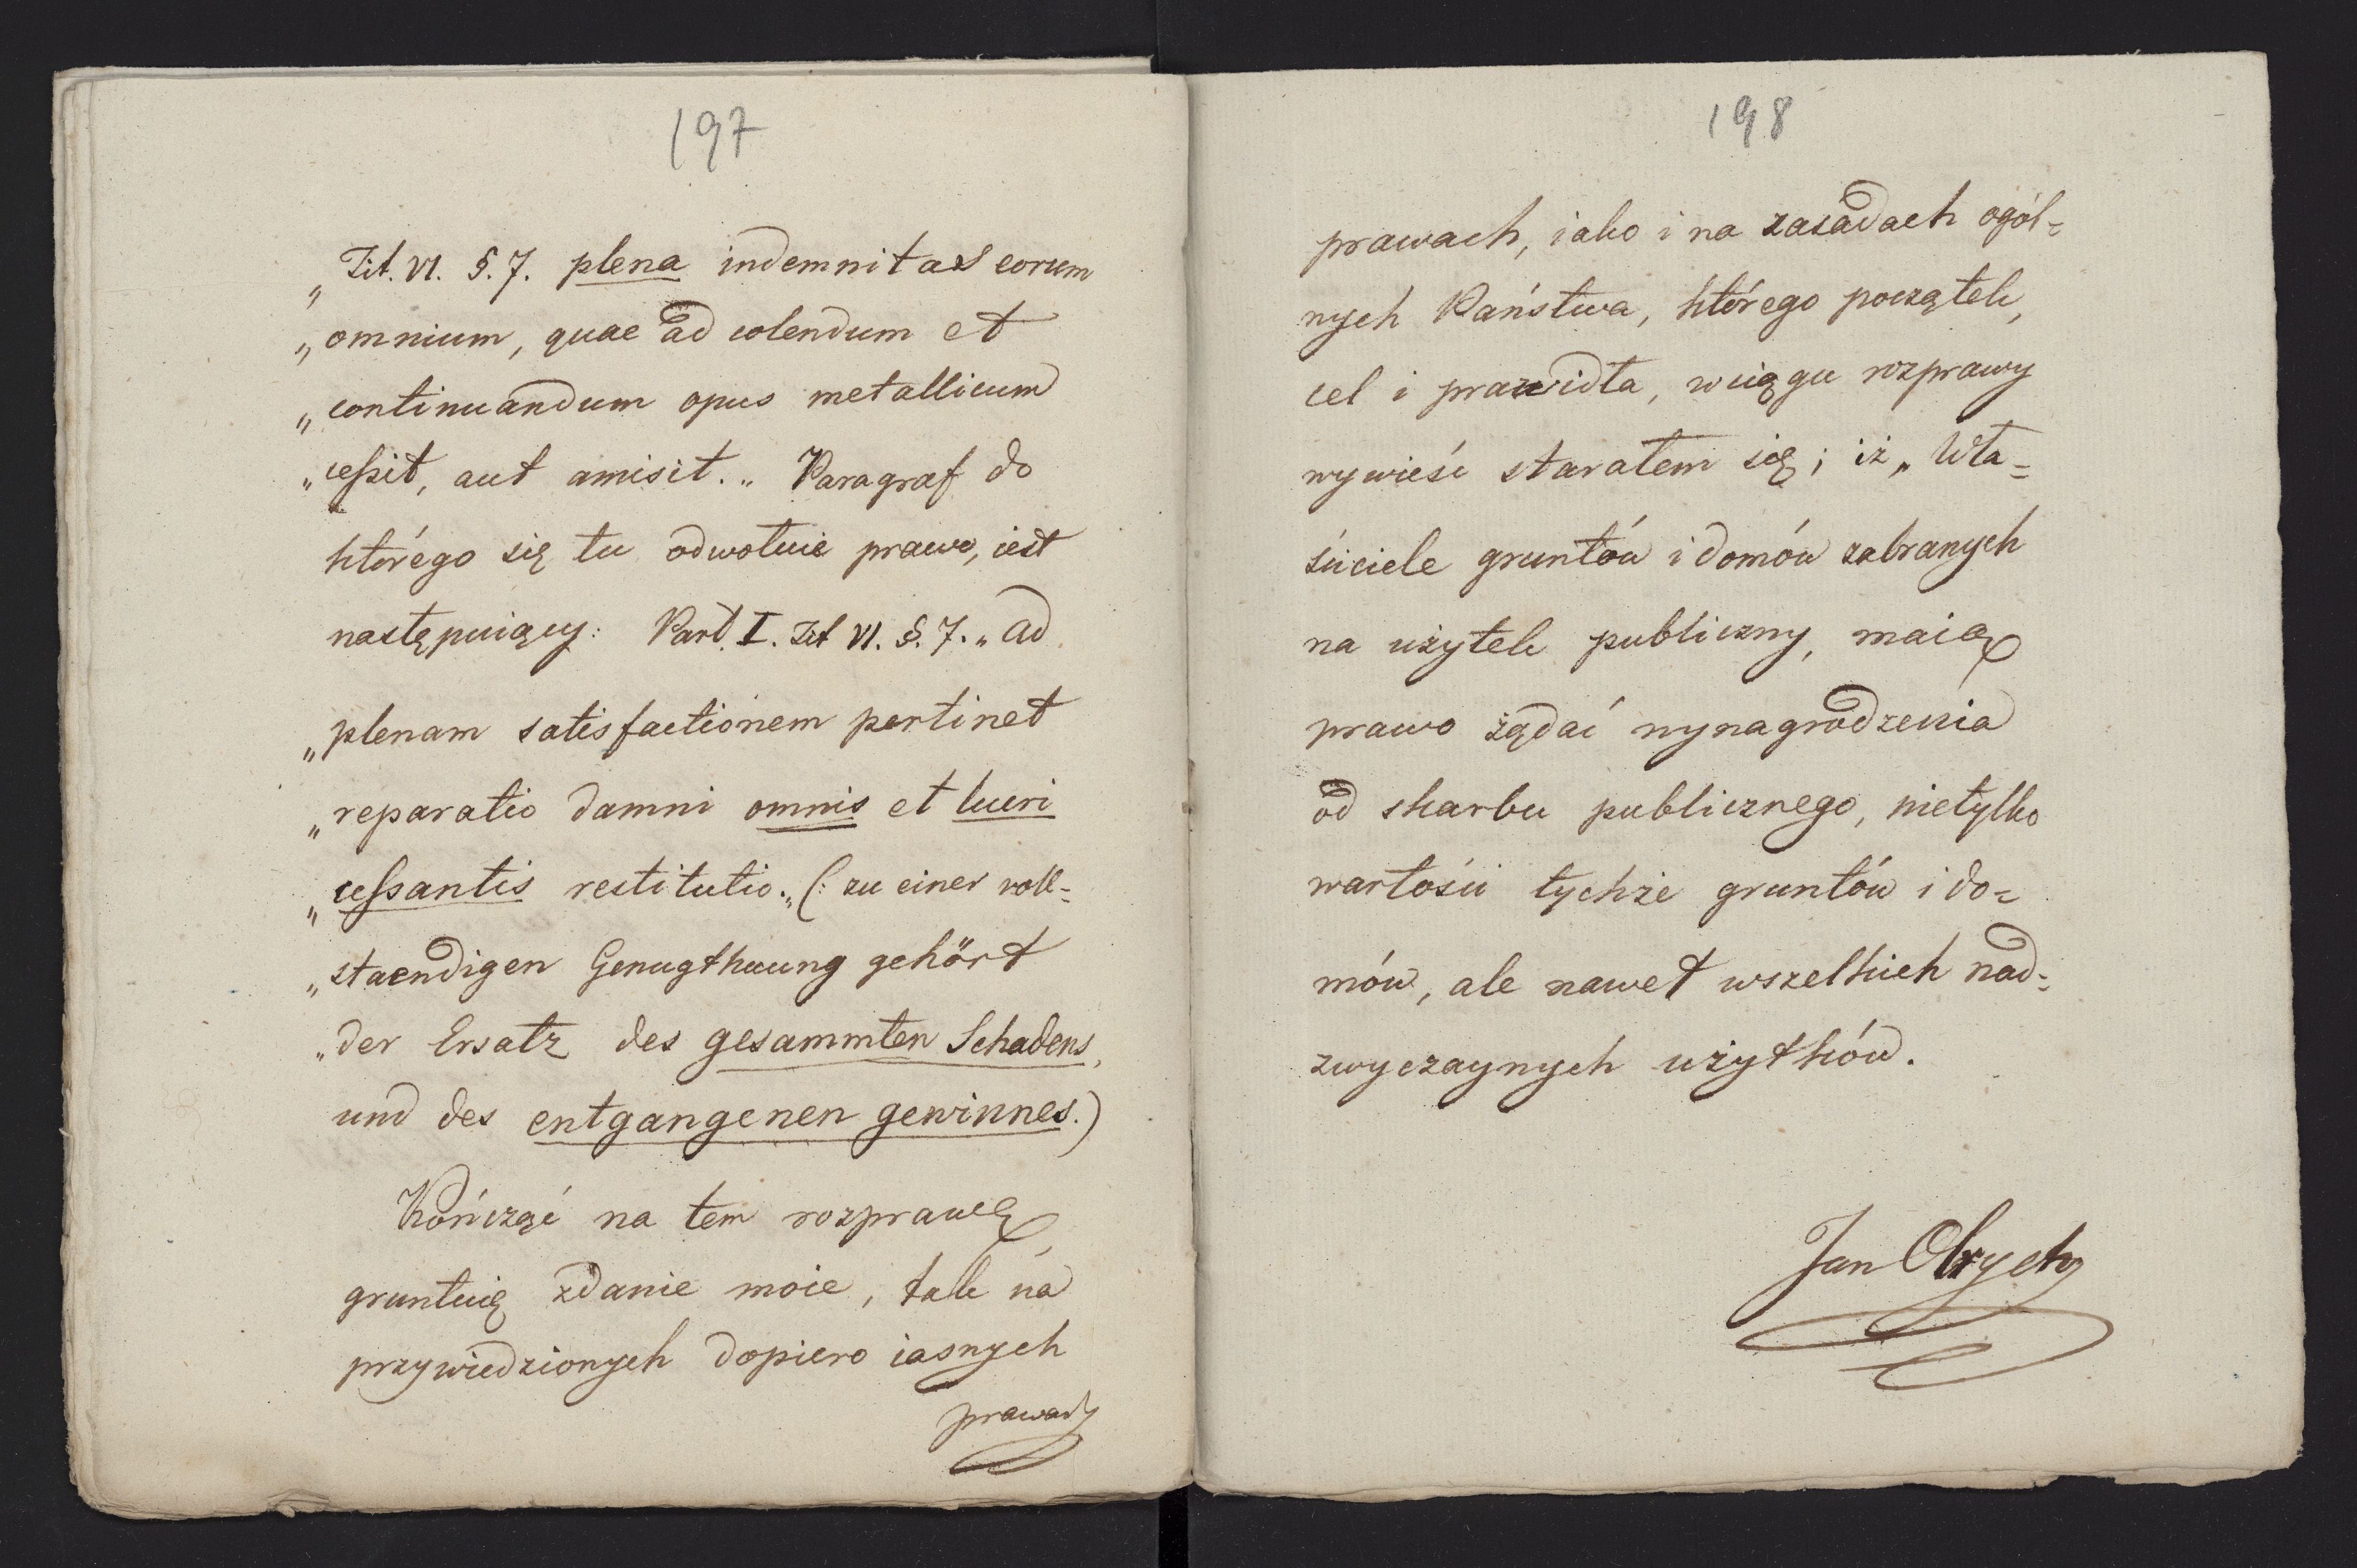 197
„Tit. VI. §. 7. plena indemnitas eorum
„omnium, quae ad colendum et
„continuandum opus metallicum
„cessit, aut amisit.„ Paragraf do
którego się tu odwołuie prawo, iest
następuiący: Part. I. Tit VI. §. 7. „ad
„plenam satisfactionem pertinet
„reparatio damni omnis et lucri
„cessantis restitutio.„ (: zu einer voll=
„staendigen Genugthuung gehört
„der Ersatz des gesammten Schadens,
und des entgangenen gewinnes.)
Kończąć na tem rozprawę,
gruntuię zdanie moie, tak na
przywiedzionych dopiero iasnych
prawach
198
prawach, iako i na zasadach ogól=
nych Państwa, którego początek,
cel i prawidła, wciągu rozprawy
wywieść starałem się; iż „Wła=
ściciele gruntów i domów zabranych
na użytek publiczny, maią
prawo żądać wynagrodzenia
od skarbu publicznego, nietylko
wartości tychże gruntów i do=
mów, ale nawet wszelkich nad=
zwyczaynych użytków.
Jan